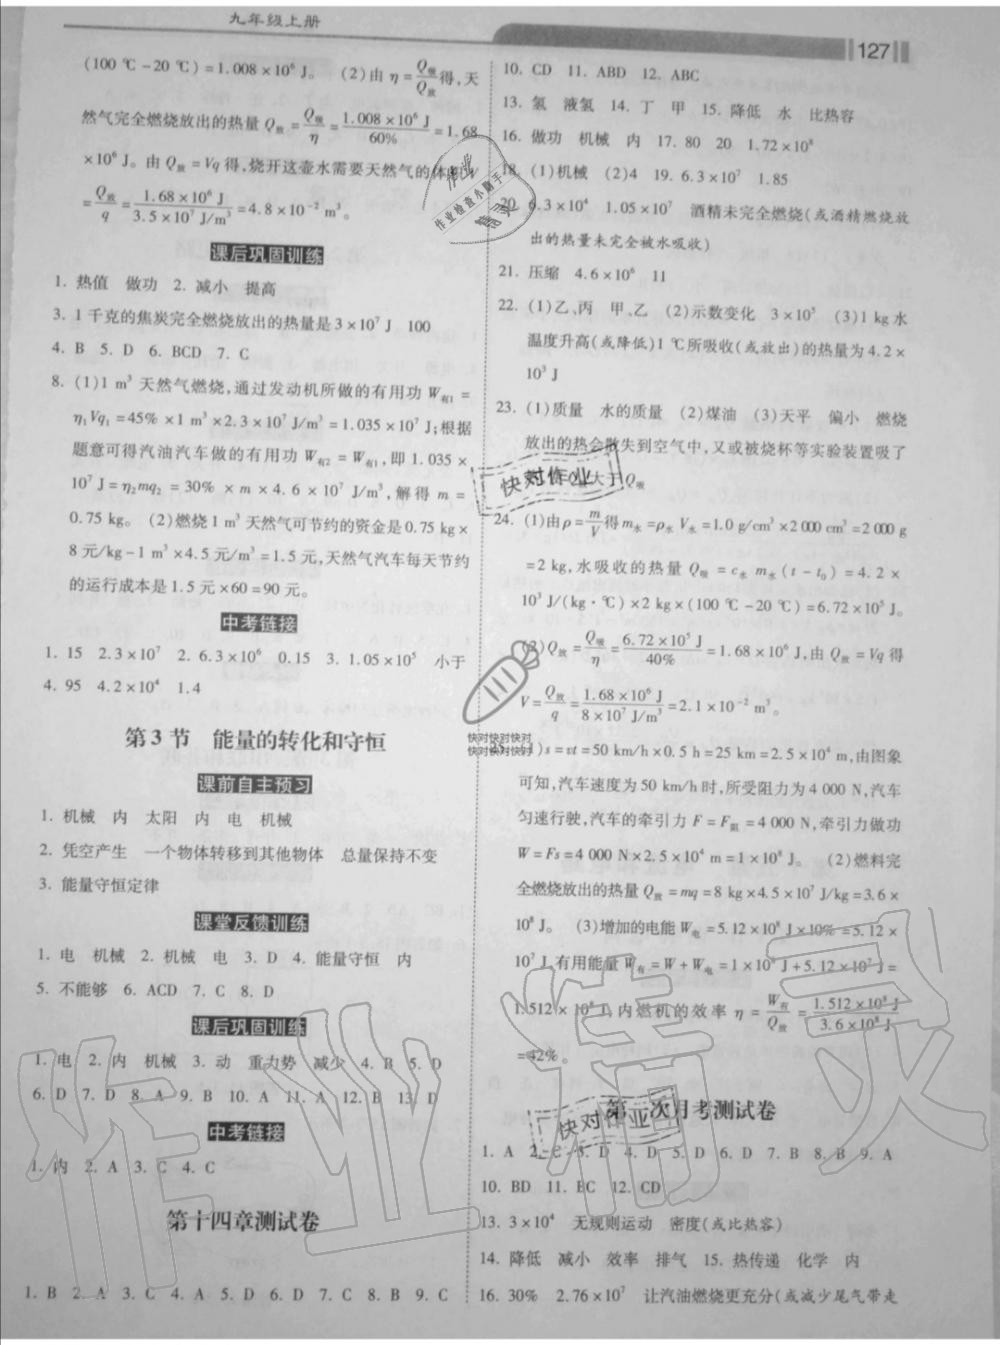 九年级上册
127
(100 ℃-20 ℃)=1.008×10⁶ J。 (2)由 η=Q吸/Q放得,天
然气完全燃烧放出的热量 Q放=Q吸/η=1.008×10⁶ J/60%=1.68
×10⁶ J。由 Q放=Vq 得,烧开这壶水需要天然气的体积V
=Q放/q=1.68×10⁶ J/3.5×10⁷ J/m³=4.8×10⁻² m³。
课后巩固训练
1. 热值 做功 2. 减小 提高
3. 1 千克的焦炭完全燃烧放出的热量是 3×10⁷ J 100
4. B 5. D 6. BCD 7. C
8. (1)1 m³ 天然气燃烧,通过发动机所做的有用功 W有1=
η₁Vq₁=45%×1 m³×2.3×10⁷ J/m³=1.035×10⁷ J;根据
题意可得汽油汽车做的有用功 W有2=W有1,即 1.035×
10⁷ J=η₂mq₂=30%×m×4.6×10⁷ J/m³,解得 m=
0.75 kg。 (2)燃烧 1 m³ 天然气可节约的资金是 0.75 kg×
8 元/kg-1 m³×4.5 元/m³=1.5 元,天然气汽车每天节约
的运行成本是 1.5 元×60=90 元。
中考链接
1. 15 2.3×10⁷ 2. 6.3×10⁶ 0.15 3. 1.05×10⁵ 小于
4. 95 4.2×10⁴ 1.4
第 3 节 能量的转化和守恒
课前自主预习
1. 机械 内 太阳 内 电 机械
2. 凭空产生 一个物体转移到其他物体 总量保持不变
3. 能量守恒定律
课堂反馈训练
1. 电 机械 2. 机械 电 3. D 4. 能量守恒 内
5. 不能够 6. ACD 7. C 8. D
课后巩固训练
1. 电 2. 内 机械 3. 动 重力势 减少 4. B 5. D
6. D 7. D 8. A 9. B 10. A 11. A 12. B 13. D
中考链接
1. 内 2. A 3. C 4. C
第十四章测试卷
1. B 2. A 3. C 4. A 5. D 6. D 7. C 8. B 9. C
10. CD 11. ABD 12. ABC
13. 氢 液氢 14. 丁 甲 15. 降低 水 比热容
16. 做功 机械 内 17. 80 20 1.72×10⁸
18. (1)机械 (2)4 19. 6.3×10⁷ 1.85
20. 6.3×10⁴ 1.05×10⁷ 酒精未完全燃烧(或酒精燃烧放
出的热量未完全被水吸收)
21. 压缩 4.6×10⁶ 11
22. (1)乙、丙 甲、乙 (2)示数变化 3×10⁵ (3)1 kg 水
温度升高(或降低)1 ℃所吸收(或放出)的热量为 4.2×
10³ J
23. (1)质量 水的质量 (2)煤油 (3)天平 偏小 燃烧
放出的热会散失到空气中,又或被烧杯等实验装置吸了
大于Q吸
24. (1)由 ρ=m/V得 m水=ρ水 V水=1.0 g/cm³×2 000 cm³=2 000 g
=2 kg,水吸收的热量 Q吸=c水 m水(t-t₀)=4.2×
10³ J/(kg·℃)×2 kg×(100 ℃-20 ℃)=6.72×10⁵ J。
(2)Q放=Q吸/η=6.72×10⁵ J/40%=1.68×10⁶ J,由 Q放=Vq 得
V=Q放/q=1.68×10⁶ J/8×10⁷ J/m³=2.1×10⁻² m³。
25. (1)s=vt=50 km/h×0.5 h=25 km=2.5×10⁴ m,由图象
可知,汽车速度为 50 km/h 时,所受阻力为 4 000 N,汽车
匀速行驶,汽车的牵引力 F=F阻=4 000 N,牵引力做功
W=Fs=4 000 N×2.5×10⁴ m=1×10⁸ J。 (2)燃料完
全燃烧放出的热量 Q放=mq=8 kg×4.5×10⁷ J/kg=3.6×
10⁸ J。 (3)增加的电能 W电=5.12×10⁸ J×10%=5.12×
10⁷ J,有用能量 W有=W+W电=1×10⁸ J+5.12×10⁷ J=
1.512×10⁸ J,内燃机的效率 η=W有/Q放=1.512×10⁸ J/3.6×10⁸ J
=42%。
第一次月考测试卷
1. A 2. C 3. D 4. D 5. D 6. D 7. B 8. B 9. A
10. BD 11. BC 12. CD
13. 3×10⁴ 无规则运动 密度(或比热容)
14. 降低 减小 效率 排气 15. 热传递 化学 内
16. 30% 2.76×10⁷ 让汽油燃烧更充分(或减少尾气带走
作业检查小助手
快对作业
快对快对快对
快对快对快对
快对作业
作业精灵